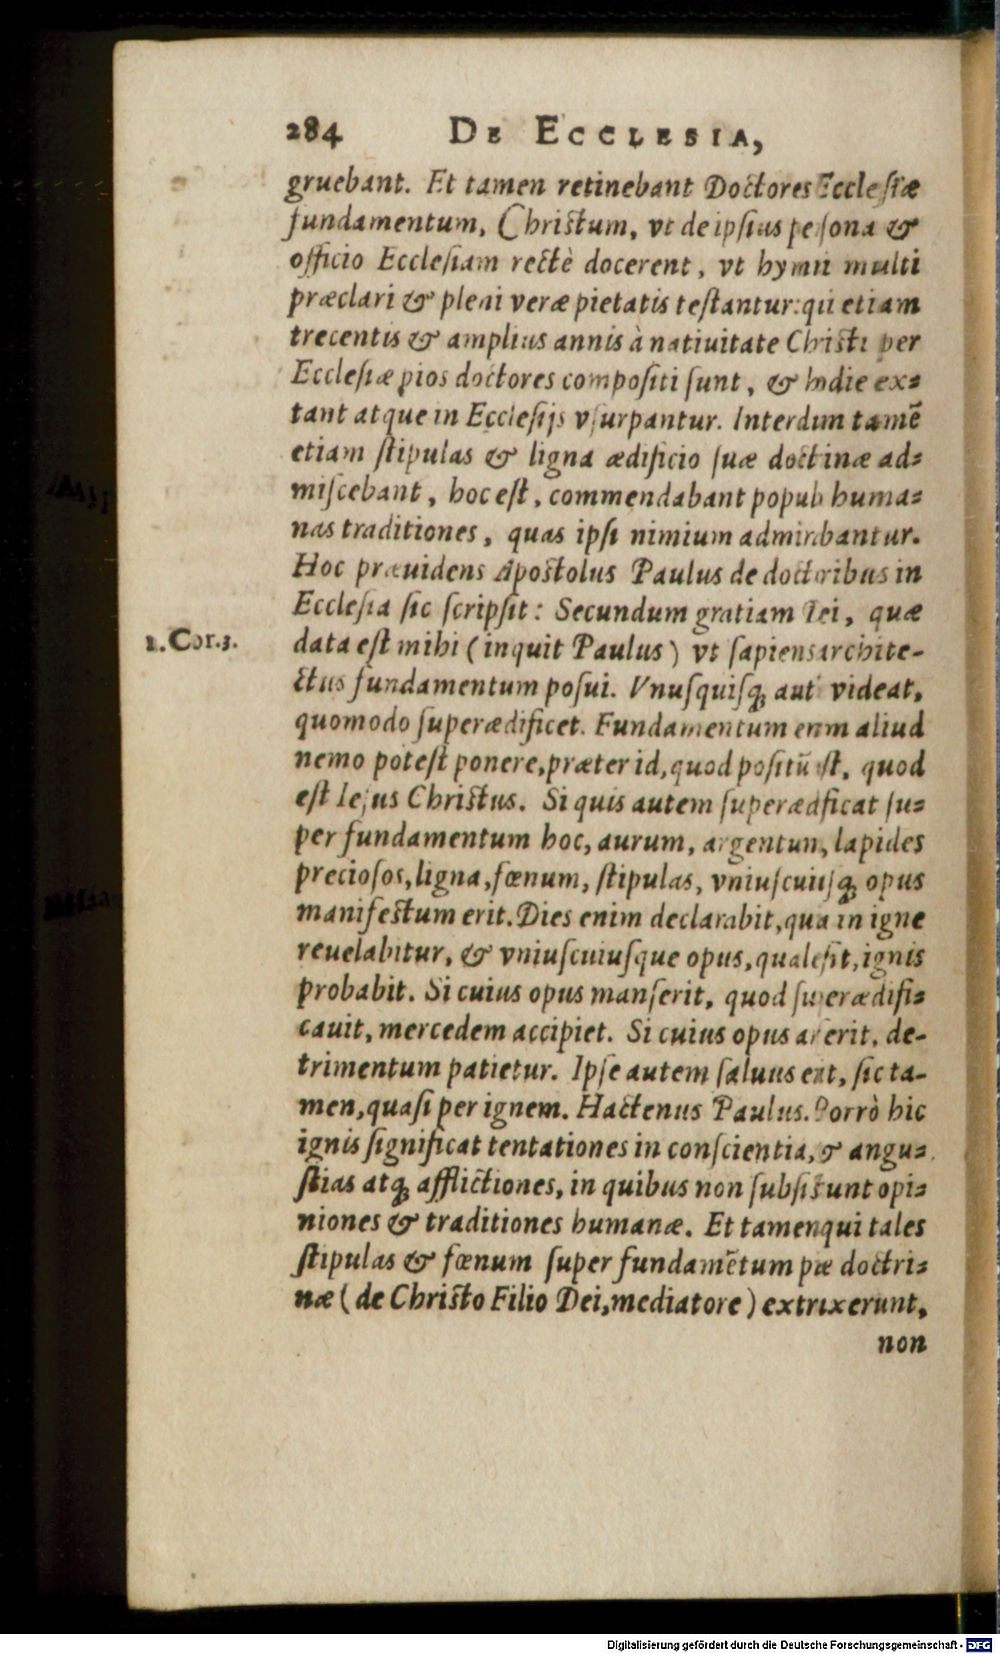 284 DE ECCLESIA,
gruebant. Et tamen retinebant Doctores Eccleſiæ
fundamentum, Chriſtum, vt de ipſius perſona &
officio Eccleſiam rectè docerent, vt hymni multi
præclari & pleni veræ pietatis teſtantur: qui etiam
trecentis & amplius annis à natiuitate Chriſti per
Eccleſiæ pios doctores compoſiti ſunt, & hodie ex=
tant atque in Eccleſijs vſurpantur. Interdum tamē
etiam ſtipulas & ligna ædificio ſuæ doctrinæ ad=
miſcebant, hoc eſt, commendabant populo huma=
nas traditiones, quas ipſi nimium admirabantur.
Hoc præuidens Apoſtolus Paulus de doctoribus in
Eccleſia ſic ſcripſit: Secundum gratiam Dei, quæ
1. Cor. 3.
data eſt mihi (inquit Paulus) vt ſapiens archite-
ctus fundamentum poſui. Vnuſquiſq; aut videat,
quomodo ſuperædificet. Fundamentum enim aliud
nemo poteſt ponere, præter id, quod poſitū eſt, quod
eſt Ieſus Chriſtus. Si quis autem ſuperædificat ſu=
per fundamentum hoc, aurum, argentum, lapides
precioſos, ligna, fœnum, ſtipulas, vniuſcuiuſq; opus
manifeſtum erit. Dies enim declarabit, qua in igne
reuelabitur, & vniuſcuiuſque opus, quale ſit, ignis
probabit. Si cuius opus manſerit, quod ſuperædifi=
cauit, mercedem accipiet. Si cuius opus arſerit, de-
trimentum patietur. Ipſe autem ſaluus erit, ſic ta-
men, quaſi per ignem. Hactenus Paulus. Porrò hic
ignis ſignificat tentationes in conſcientia, & angu=
ſtias atq; afflictiones, in quibus non ſubſiſtunt opi=
niones & traditiones humanæ. Et tamen qui tales
ſtipulas & fœnum ſuper fundamētum piæ doctri=
næ (de Chriſto Filio Dei, mediatore) extrixerunt,
non
Digitalisierung gefördert durch die Deutsche Forschungsgemeinschaft - DFG